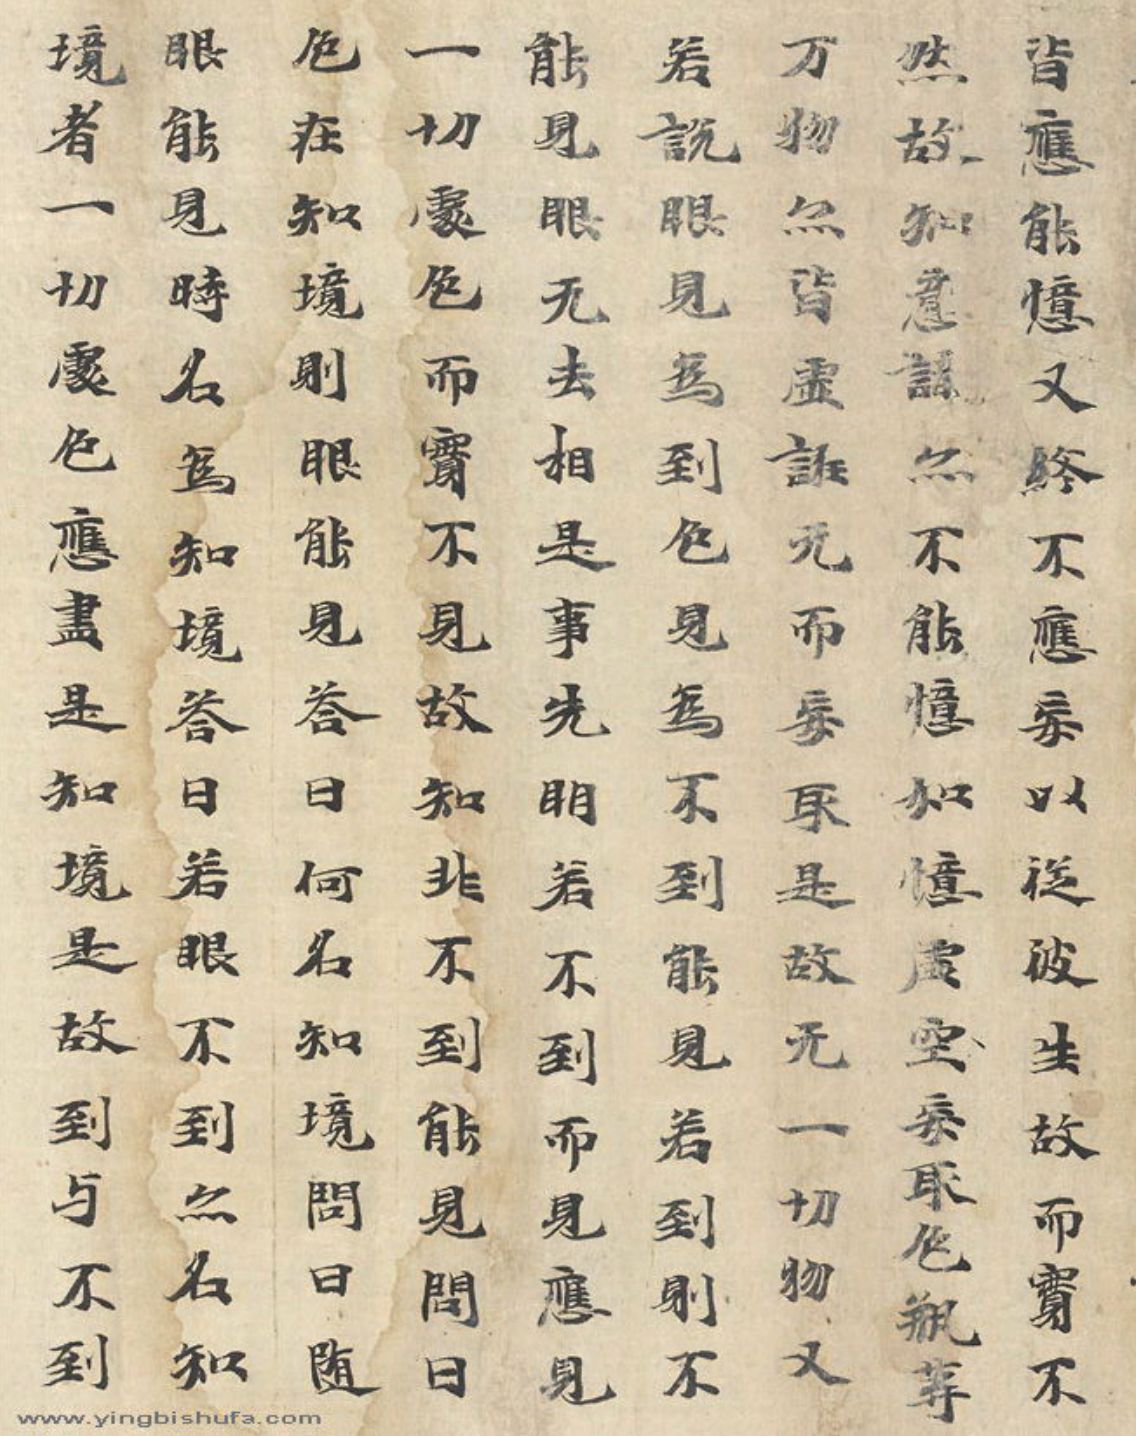 皆應能憶又終不應妄以從彼生故而實不
然故知意識亦不能憶如憶虛空妄取色瓶等
万物亦皆虛誑无而妄取是故无一切物又
若說眼見為到色見為不到能見若到則不
能見眼无去相是事先明若不到而見應見
一切處色而實不見故知非不到能見問曰
色在知境則眼能見答曰何名知境問曰随
眼能見時名為知境答曰若眼不到亦名知
境者一切處色應盡是知境是故到与不到
www.yingbishufa.com